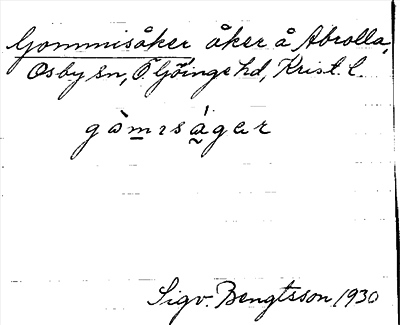 Gommisåker åker å Abrolla,
Osby sn, Ö. Göinge hd, Krist. l.
gòmısá̰ger
Sigv. Bengtsson 1930